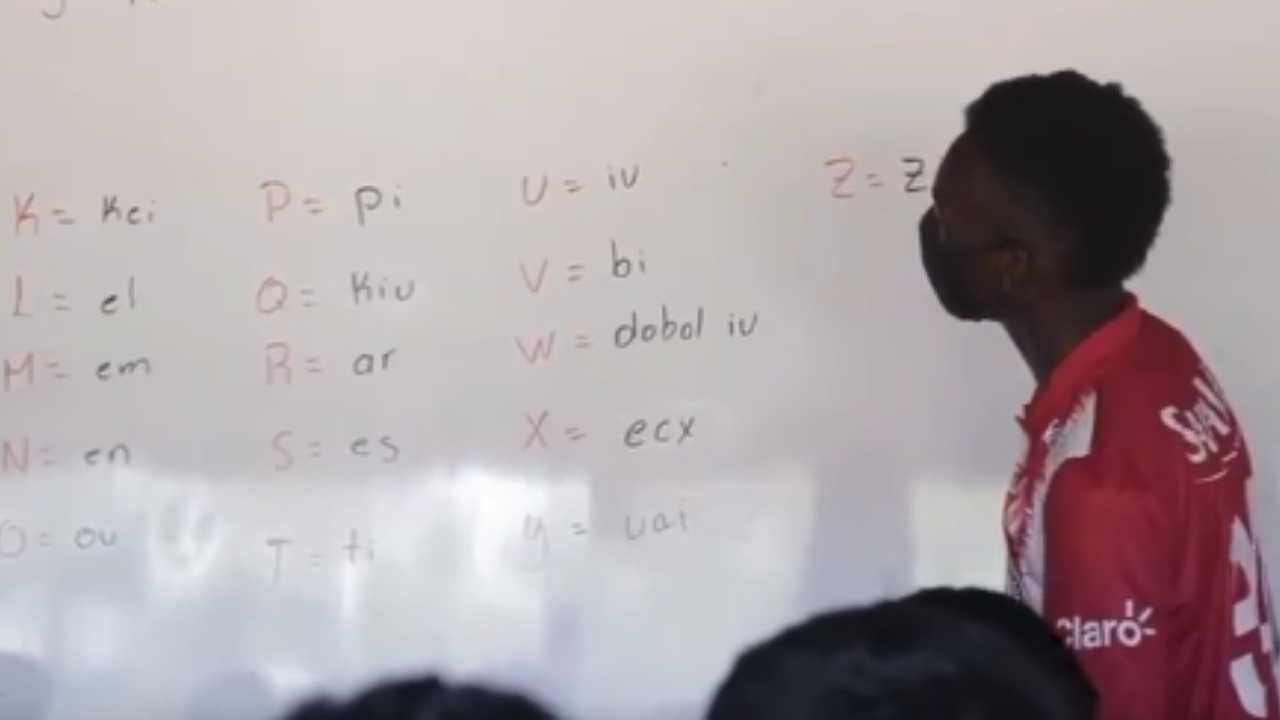 K = Kei
L = el
M = em
N = en
O = ou
P = Pi
Q = Kiu
R = ar
S = es
T = ti
U = iu
V = bi
W = dobol iu
X = ecx
y = uai
Z = Z
Claro